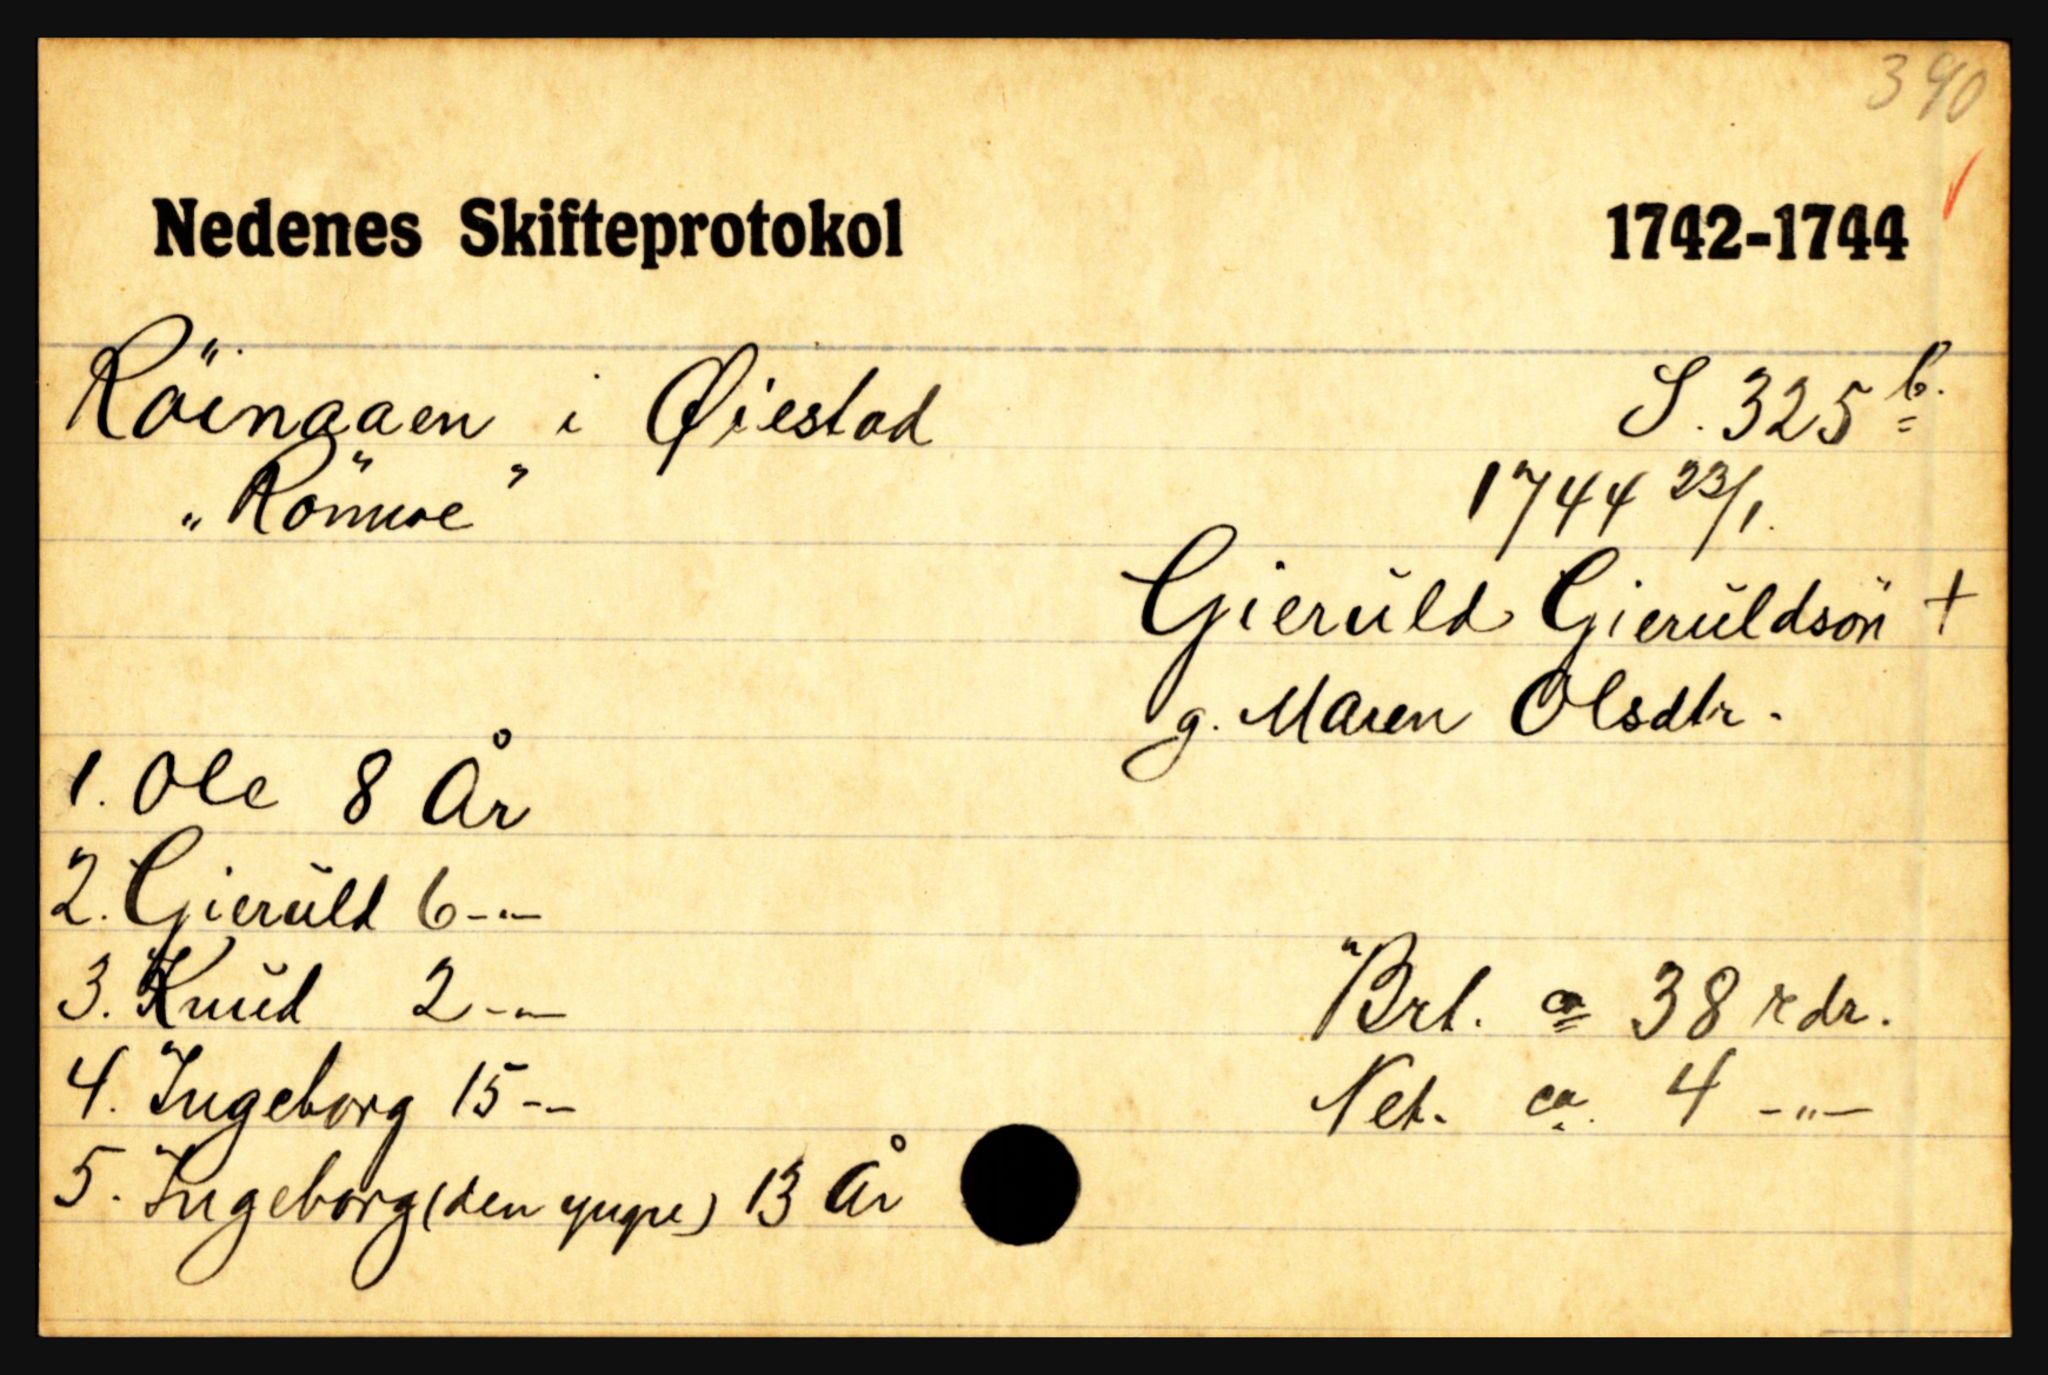 390
Nedenes Skifteprotokol 1742-1744
Röinaaen i Øiestad S. 325 b.
"Römoe" 1744 23/1.
Gieruld Gieruldsön +
g. Maren Olsdtr.
1. Ole 8 År
2. Gieruld 6 -"-
3. Knud 2 -"- Brt. ca 38 rdr.
4. Ingeborg 15 -"- Net. ca. 4 -"-
5. Ingeborg (den yngre) 13 År